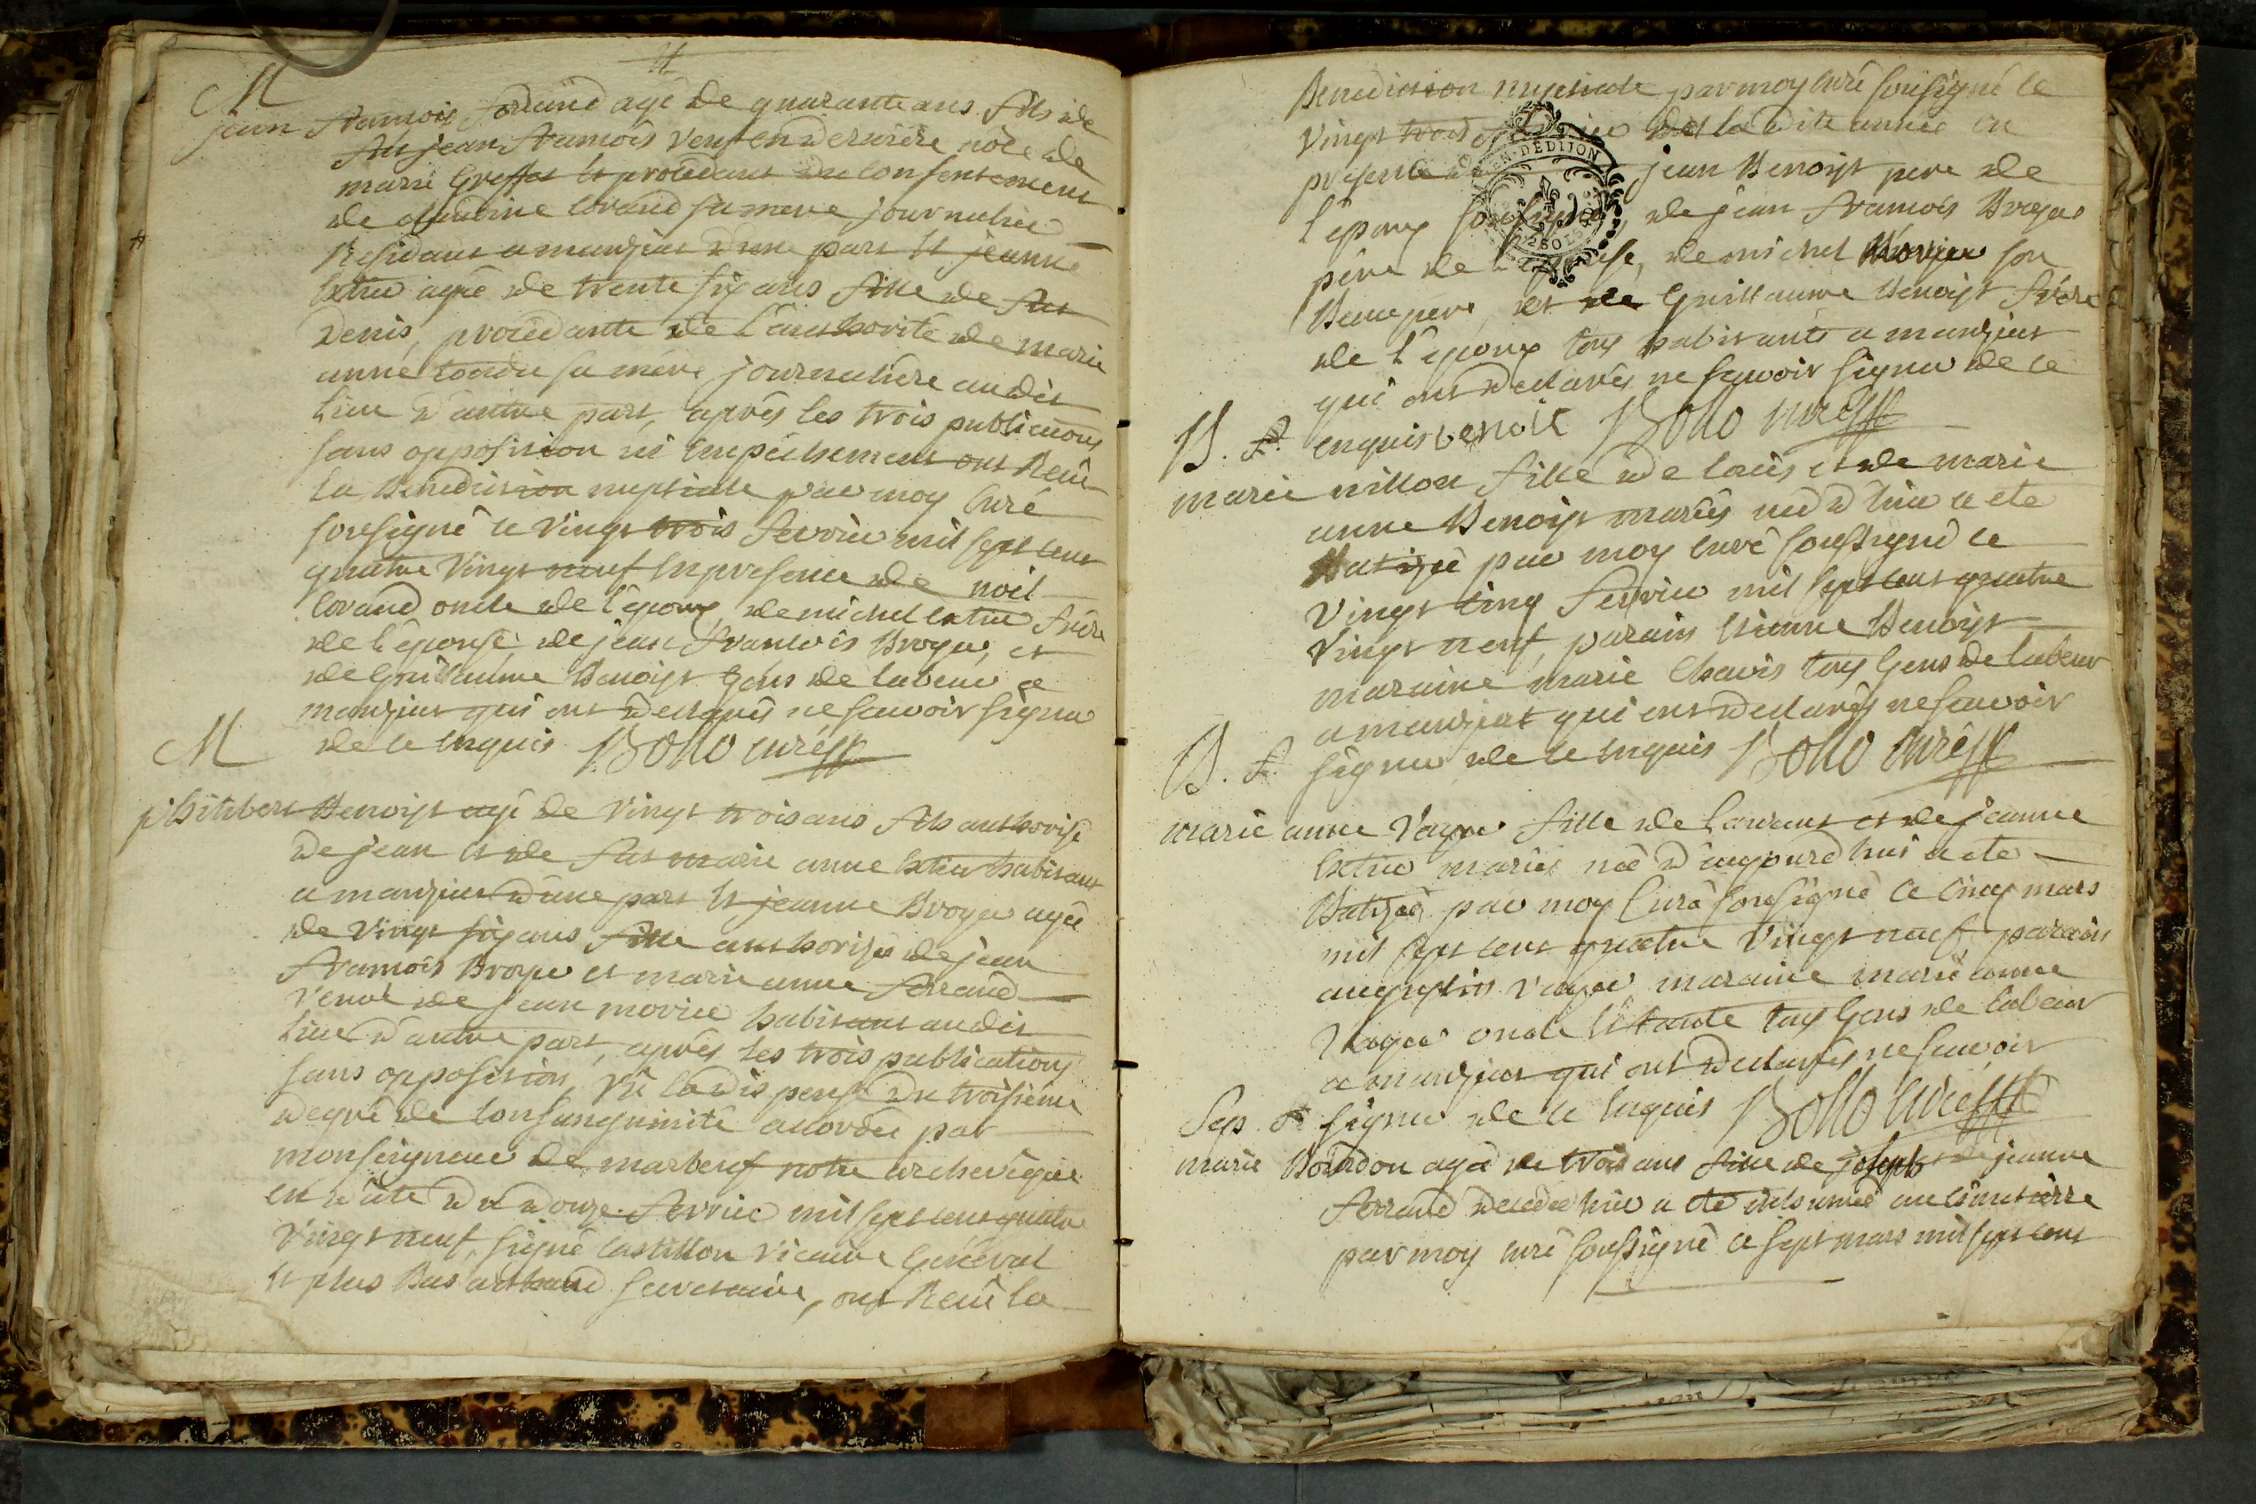 M
jean françois ferrand agé de quarante ans fils de
fut jean francois veuf en derniere nôce de
marie et procedant du consentement
de claudine morand sa mere journalier
Residant a manziat d'une part et jeanne
catin agée de trente six ans fille de fut
denis, procédante de l'authorité de marie
anne sa mére journaliere audit
lieu d'autre part, aprés les trois publications
sans opposition ni empéchement ont Reçu
la Benediction nuptiale par moy Curé
sousigné ce vingt trois fevrier mil sept cent
quatre vingt neuf en presence de noël
morand oncle de l'époux, de michel catin frére
de l'épouse, de jean francois Broyer, et
de Guillaume Benoist Gens de labeur a
manziat qui ont declarés ne scavoir signer
de ce enquis Bollo curé
M
philibert Benoist agé de vingt trois ans fils authorisé
de jean et de fut marie anne catin habitant
a manziat d'une part et jeanne Broyer agée
de vingt six ans fille authorisée de jean
francois Broyer et marie anne ferrand
veuve de jean morier habitant audit
lieu d'autre part, aprés les trois publications
sans opposition, vû la dispense du troisiéme
degré de consanguinité accordée par
monseigneur de marbeuf notre archevêque
en date du douze fevrier mil sept cent quatre
vingt neuf, signé Castillon vicaire Général
et plus Bas secretaire, ont Reçu la
Benediction nuptiale par moy curé sousigné le
vingt trois fevrier de la dite année en
presence de jean Benoist pere de
l'époux sousigné, de jean francois Broyer
pére de l'épouse, de michel son
Beaupere, et de Guillaume Benoist frére
de l'époux tous habitants a manziat
qui ont declarés ne scavoir signer de ce
enquis benoit Bollo curé
B. f.
marie nillon fille de et de marie
anne Benoist mariés née d'hier a eté
Batisée par moy curé soussigné ce
vingt cinq fevrier mil sept cent quatre
vingt neuf, parain etienne Benoist
maraine marie Chavis tous Gens de labeur
a manziat qui ont declarés ne scavoir
B. f. signer de ce enquis Bollo Curé
marie anne vayer fille de laurent et de jeanne
catin mariés née d'aujourd'hui a eté
Batisée par moy Curé sousigné ce cinq mars
mil sept cent quatre vingt neuf parain
augustin vayer maraine marie anne
vayer oncle et tante tous Gens de labeur
a manziat qui ont declarés ne scavoir
Sep. f. signer de ce enquis Bollo curé
marie Bourdon agée de trois ans fille de joseph et de jeanne
ferrand decedée hier a eté inhumée au cimetiére
par moy curé soussigné ce sept mars mil sept cent